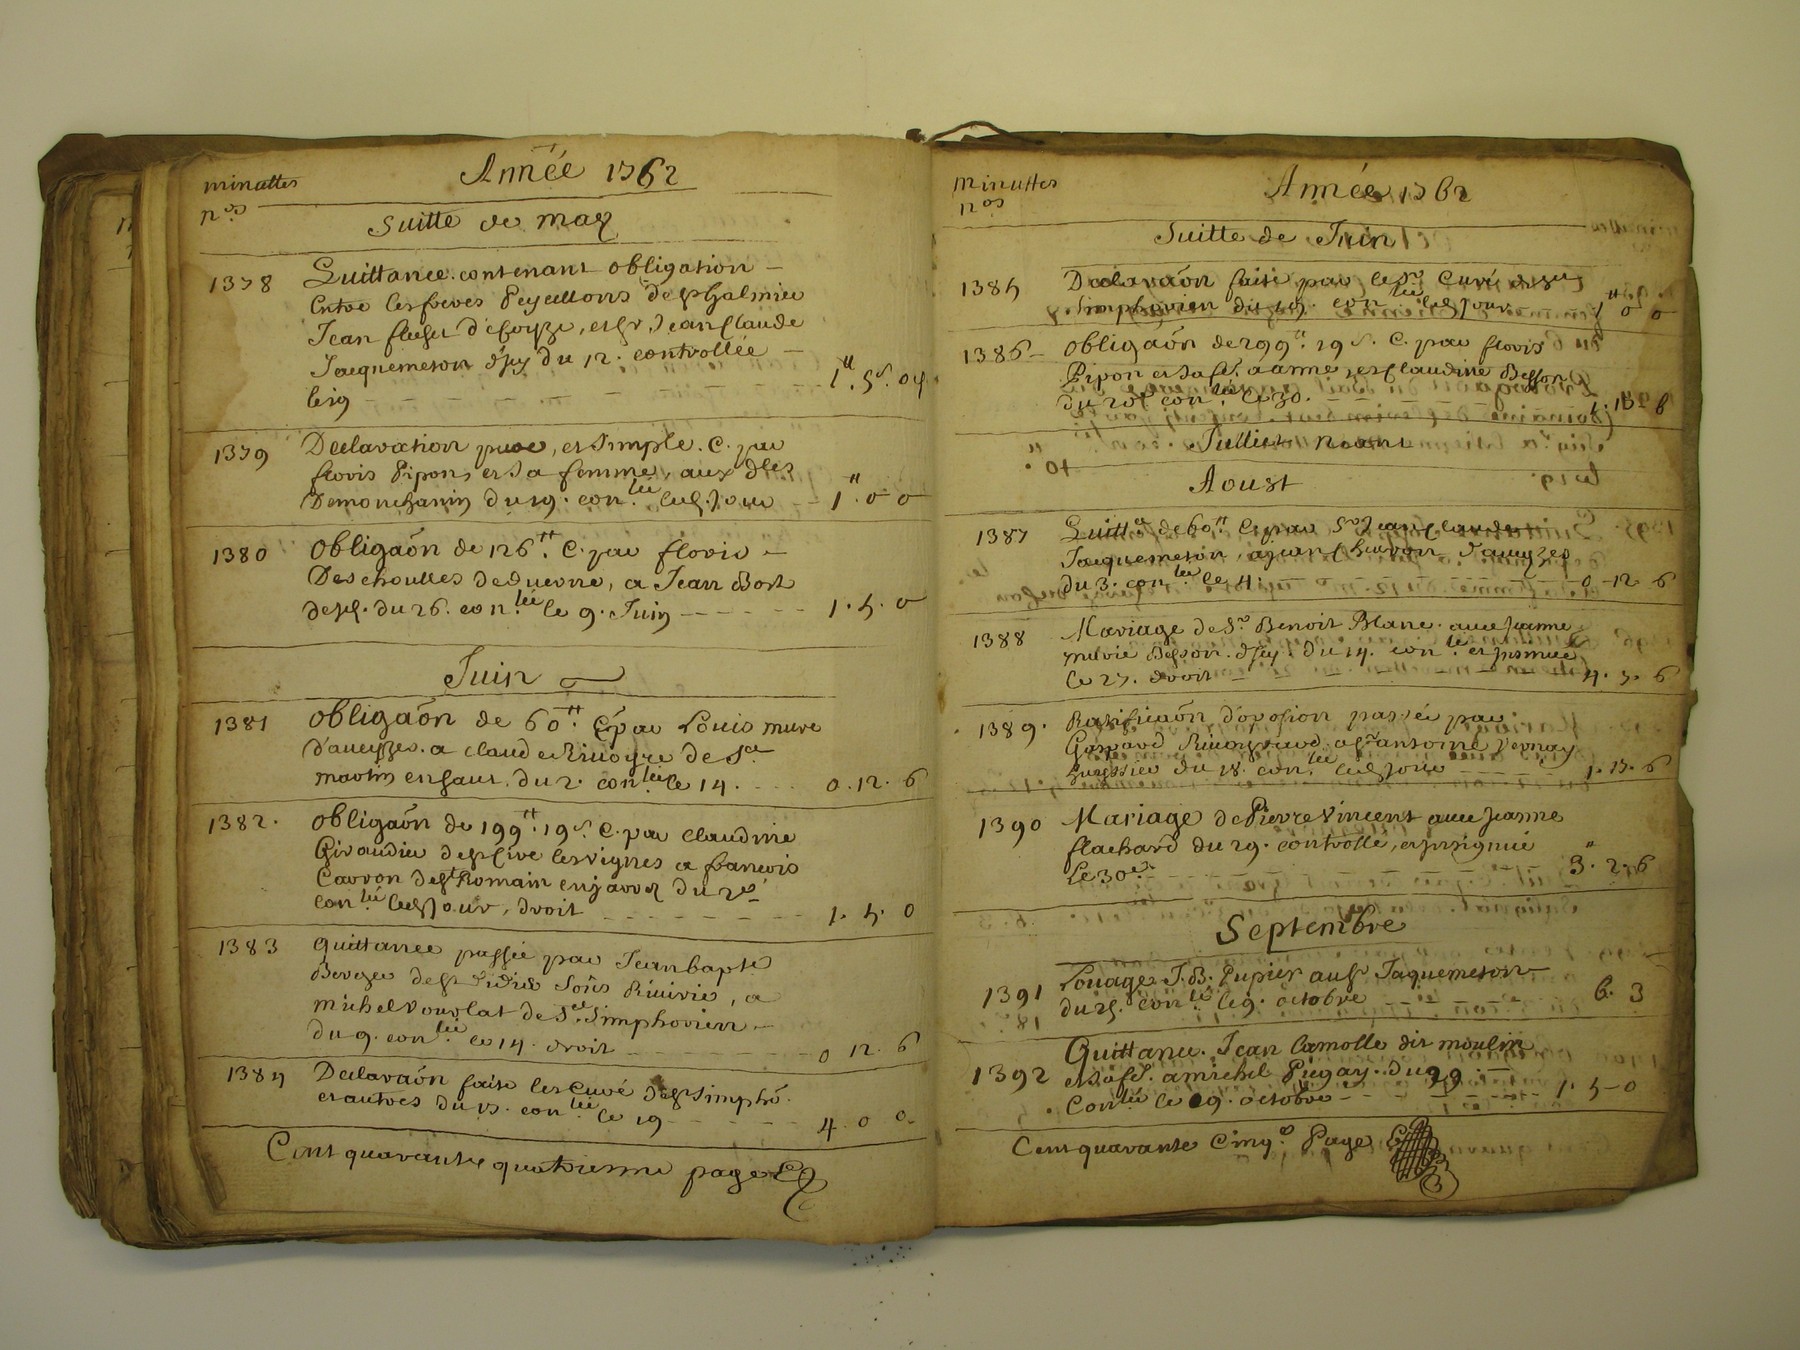 minuttes
nos
Année 1762
Suitte de may
1378 Quittance contenant obligation
Entre les freres Peycellons de st galmier
Jean flacher d'
Jaquemeton du 12. controllée
le 19 1tt. 5s. 0d
1379 Declaration pure, et simple. C. par
floris Pipon, et sa femme, aux dlles
Demonchanin du 19. conlée led. Jour 1tt 0 0
1380 obligaôn de 126tt. C. par floris
Deschoulles deduerne, a Jean
du 26. conlée le 9. Juin 1. 5. 0
Juin
1381 obligaôn de 60tt. C. par Louis mure
d'aveyzes. a claude Rivoyre de St
martin enhaut. du 2. conlée le 14. 0. 12. 6
1382. obligaôn de 199tt. 19s. C. par claudine
Giraudier les vignes a francois
Carron de st Romain en jarret du
conlée led Jour, droit 1. 5. 0
1383 quittance passée par Jean bapte
Berger de st Didier sous Riverie, a
michel vourlat de St Simphorien
du 9. conlée le 14. droit 0 12. 6
1384 Declaraôn faite les Curé de st simpho.
et autres du 15. conlée le 19 4. 0 0
Cent quarante quatrieme page
minuttes
nos
Année 1762
Suitte de Juin
1385 Declaraôn faite par le Sr Curé de st
simphorien du 19. conlée led Jour 1tt 0 0
1386 obligaôn de 299tt. 19s. C. par floris
Pipon et sa fe. a anne, et claudine Besson
du 20 conlée le 30. 1. 15 6
Juillet neant
Aoust
1387 Quittce de 60tt C. par Sr Jean claude
Jaquemeton, a d'aveyzes
du 3. conlée le 4. 0 12. 6
1388 Mariage de Sr Benoit Blanc. avec Jeanne
marie Besson. du 14. conlé et insinué
le 27. droit 4. 5. 6
1389. Ratificaôn d'opoosion passée par
Gaspard a Sr antoine vernay
huissier du 18. conlée led Jour 1. 15. 6
1390 Mariage de Pierre Vincent avec Jeanne
flachard du 29. controllé, et insinué
Le 30e. 3. 2. 6
Septembre
1391 Louage J. B. Pupier au Sr Jaquemeton
du 25. conlé le 9. octobre 6. 3
1392 Quittance. Jean lamolle dit moulin
et sa fe. a michel Pugay. du 29
Conlée le 9. octobre 1. 5 0
Cent quarante Cinqe Page